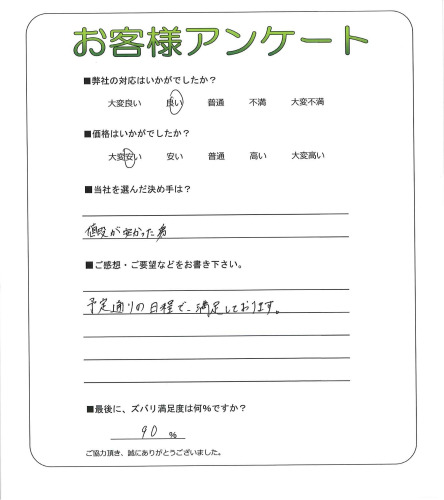 お客様アンケート
■弊社の対応はいかがでしたか?
大変良い 良い 普通 不満 大変不満
■価格はいかがでしたか?
大変安い 安い 普通 高い 大変高い
■当社を選んだ決め手は?
値段が安かった為
■ご感想・ご要望などをお書き下さい。
予定通りの日程で、満足しております。
■最後に、ズバリ満足度は何%ですか?
90 %
ご協力頂き、誠にありがとうございました。